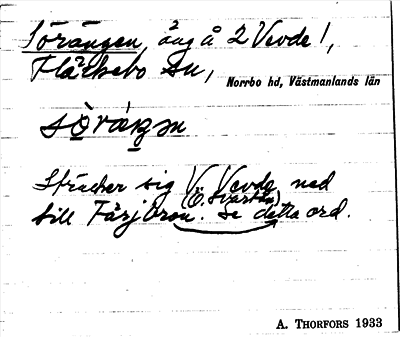 Sörängen, äng å 2 Vevde!,
Fläckebo sn,
Norrbo hd, Västmanlands län
sö̀ræŋen
Sträcker sig V. Vevde ned
(Ö. Svartån)
till Färjbron. Se detta ord.
A. THORFORS 1933